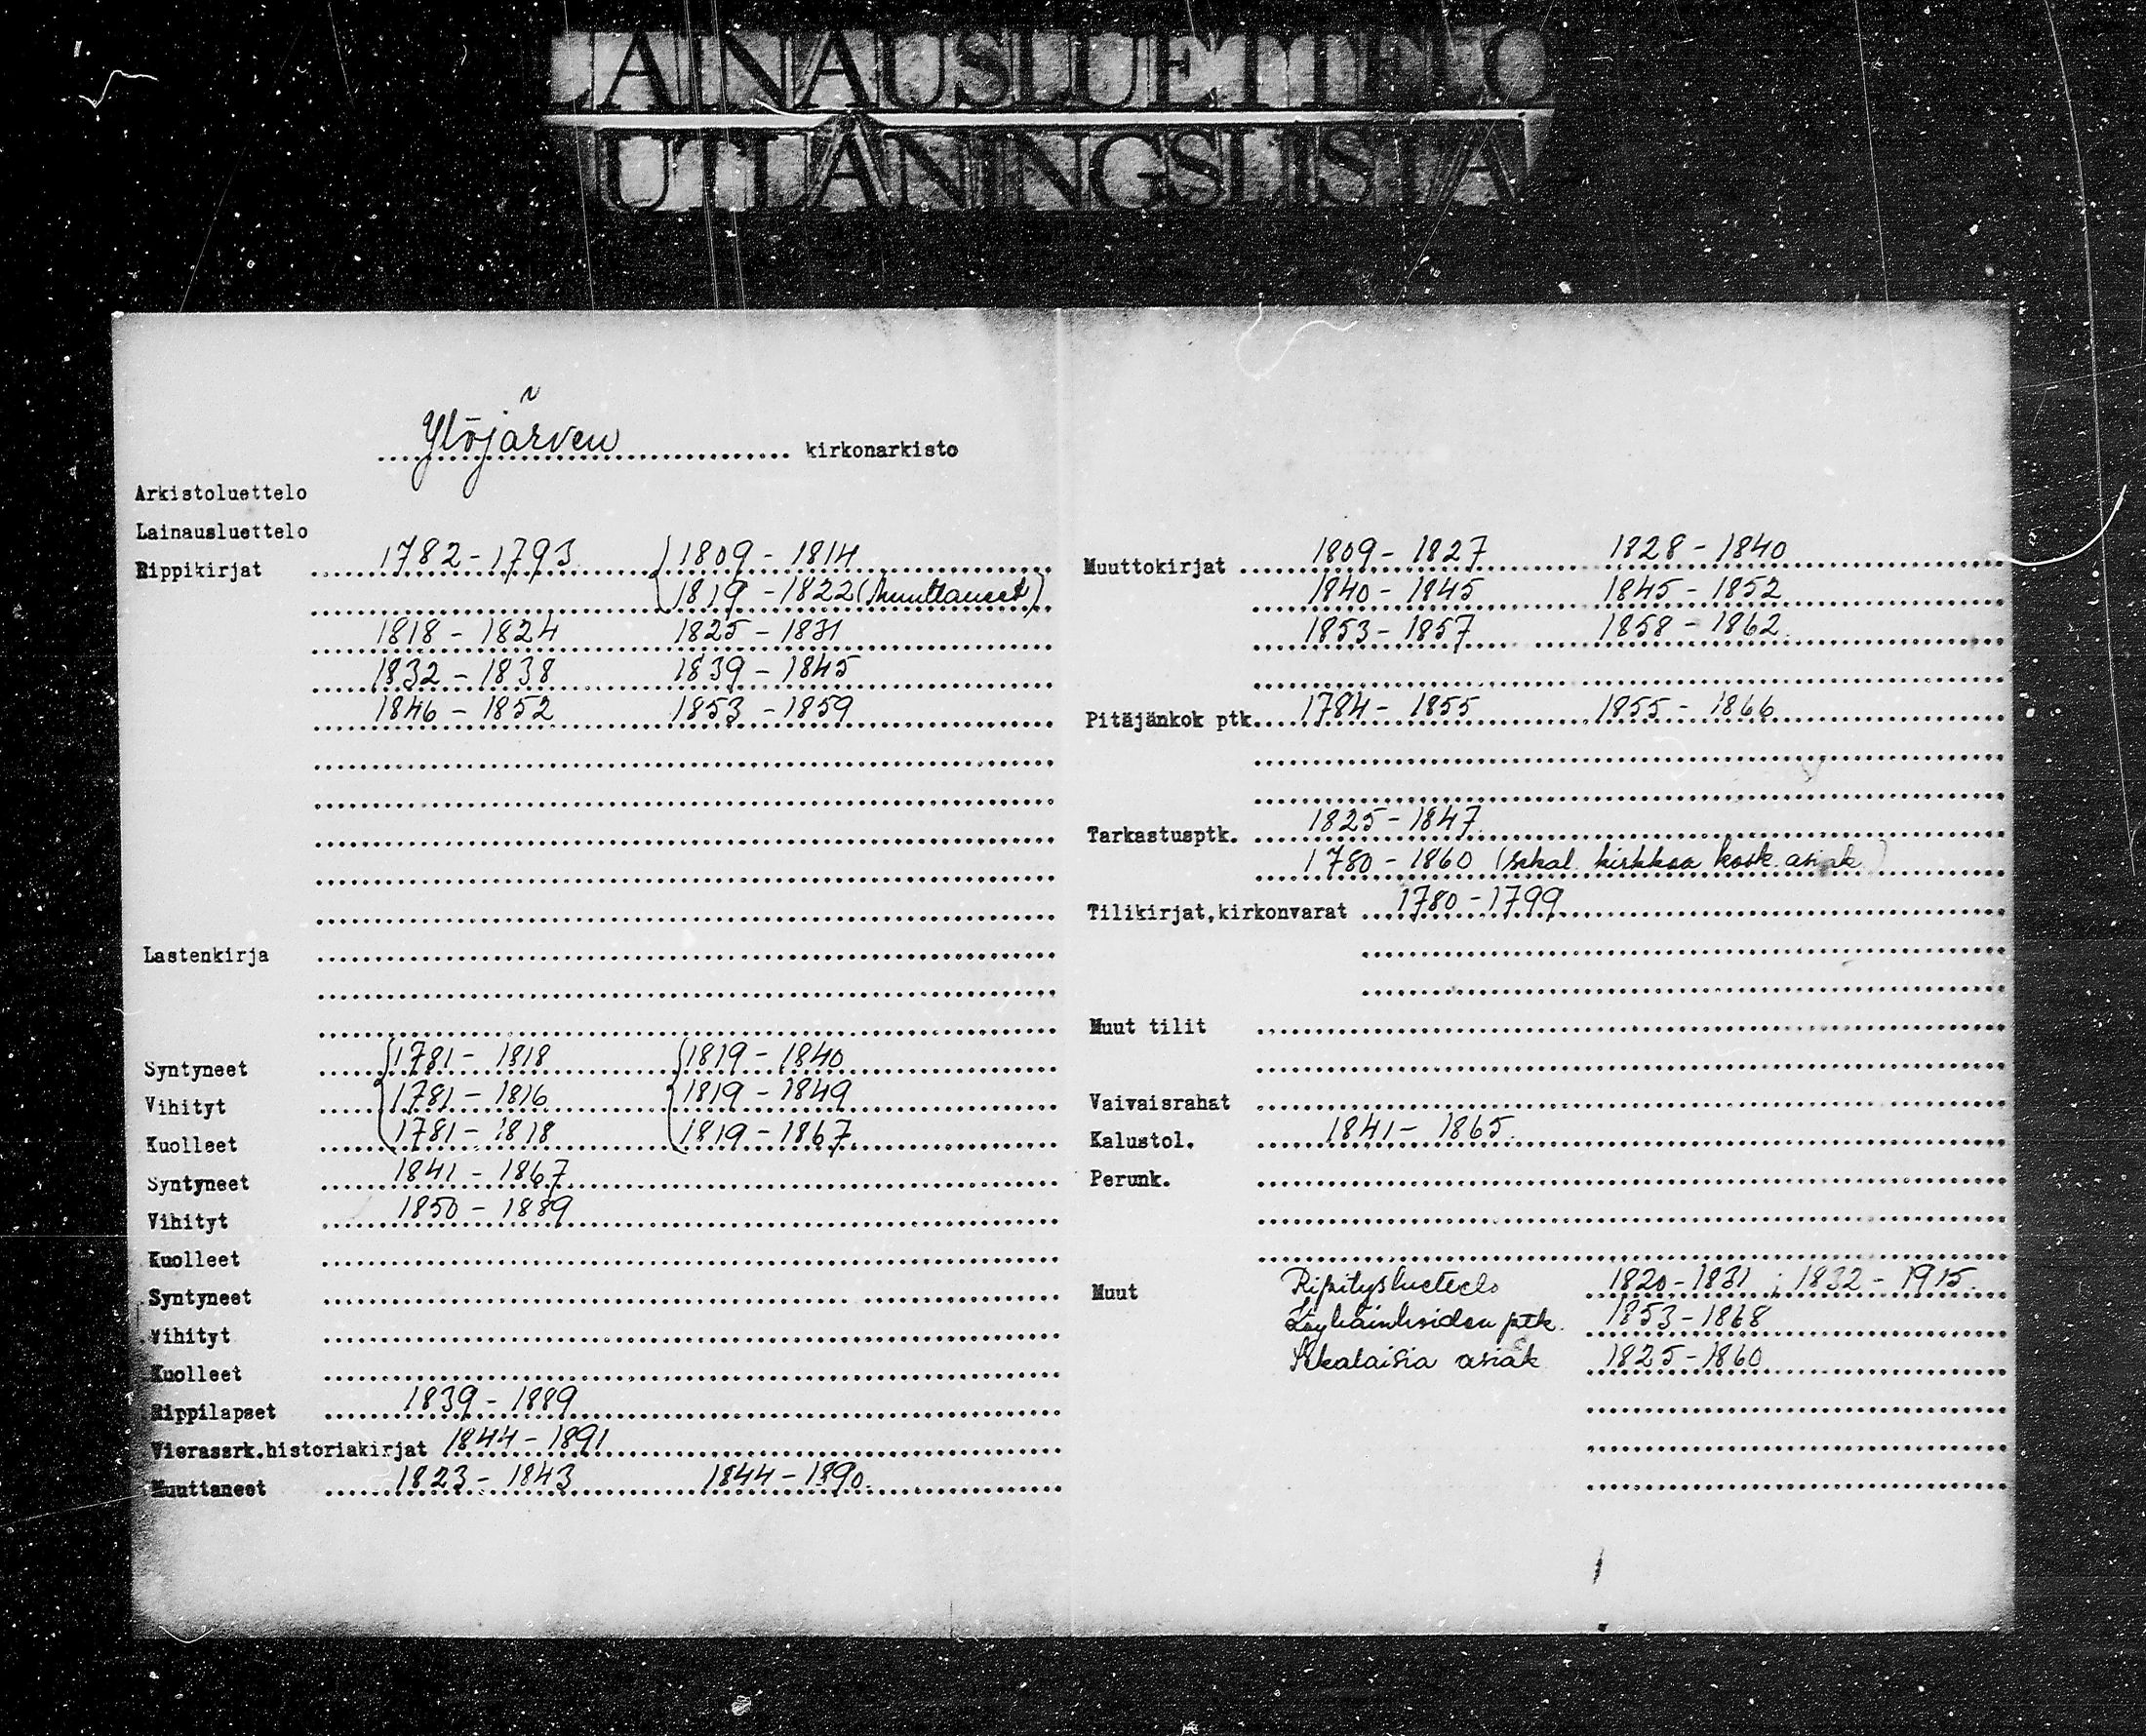 LAINAUSLUETTELO
UTLÅNINGSLISTA
Ylöjärven kirkonarkisto
Arkistoluettelo
Lainausluettelo
Rippikirjat 1782-1793 1809-1814
1819-1822 (muuttaneet)
1818-1824 1825-1831
1832-1838 1839-1845
1846-1852 1853-1859
Lastenkirja
Syntyneet 1781-1818 1819-1840
Vihityt 1781-1816 1819-1849
Kuolleet 1781-1818 1819-1867
Syntyneet 1841-1867
Vihityt 1850-1889
Kuolleet
Syntyneet
Vihityt
Kuolleet
Rippilapset 1839-1889
Vierassrk.historiakirjat 1844-1891
Muuttaneet 1823-1843 1844-1890
Muuttokirjat 1809-1827 1828-1840
1840-1845 1845-1852
1853-1857 1858-1862
Pitäjänkok ptk. 1784-1855 1855-1866
Tarkastusptk. 1825-1847
1780-1860 (sekal. kirkkoa kosk. asiak.)
Tilikirjat,kirkonvarat 1780-1799
Muut tilit
Vaivaisrahat
Kalustol. 1841-1865
Perunk.
Muut Ripitysluettelo 1820-1831; 1832-1915.
Köyhäinhoidon ptk. 1853-1868
Sekalaisia asiak 1825-1860